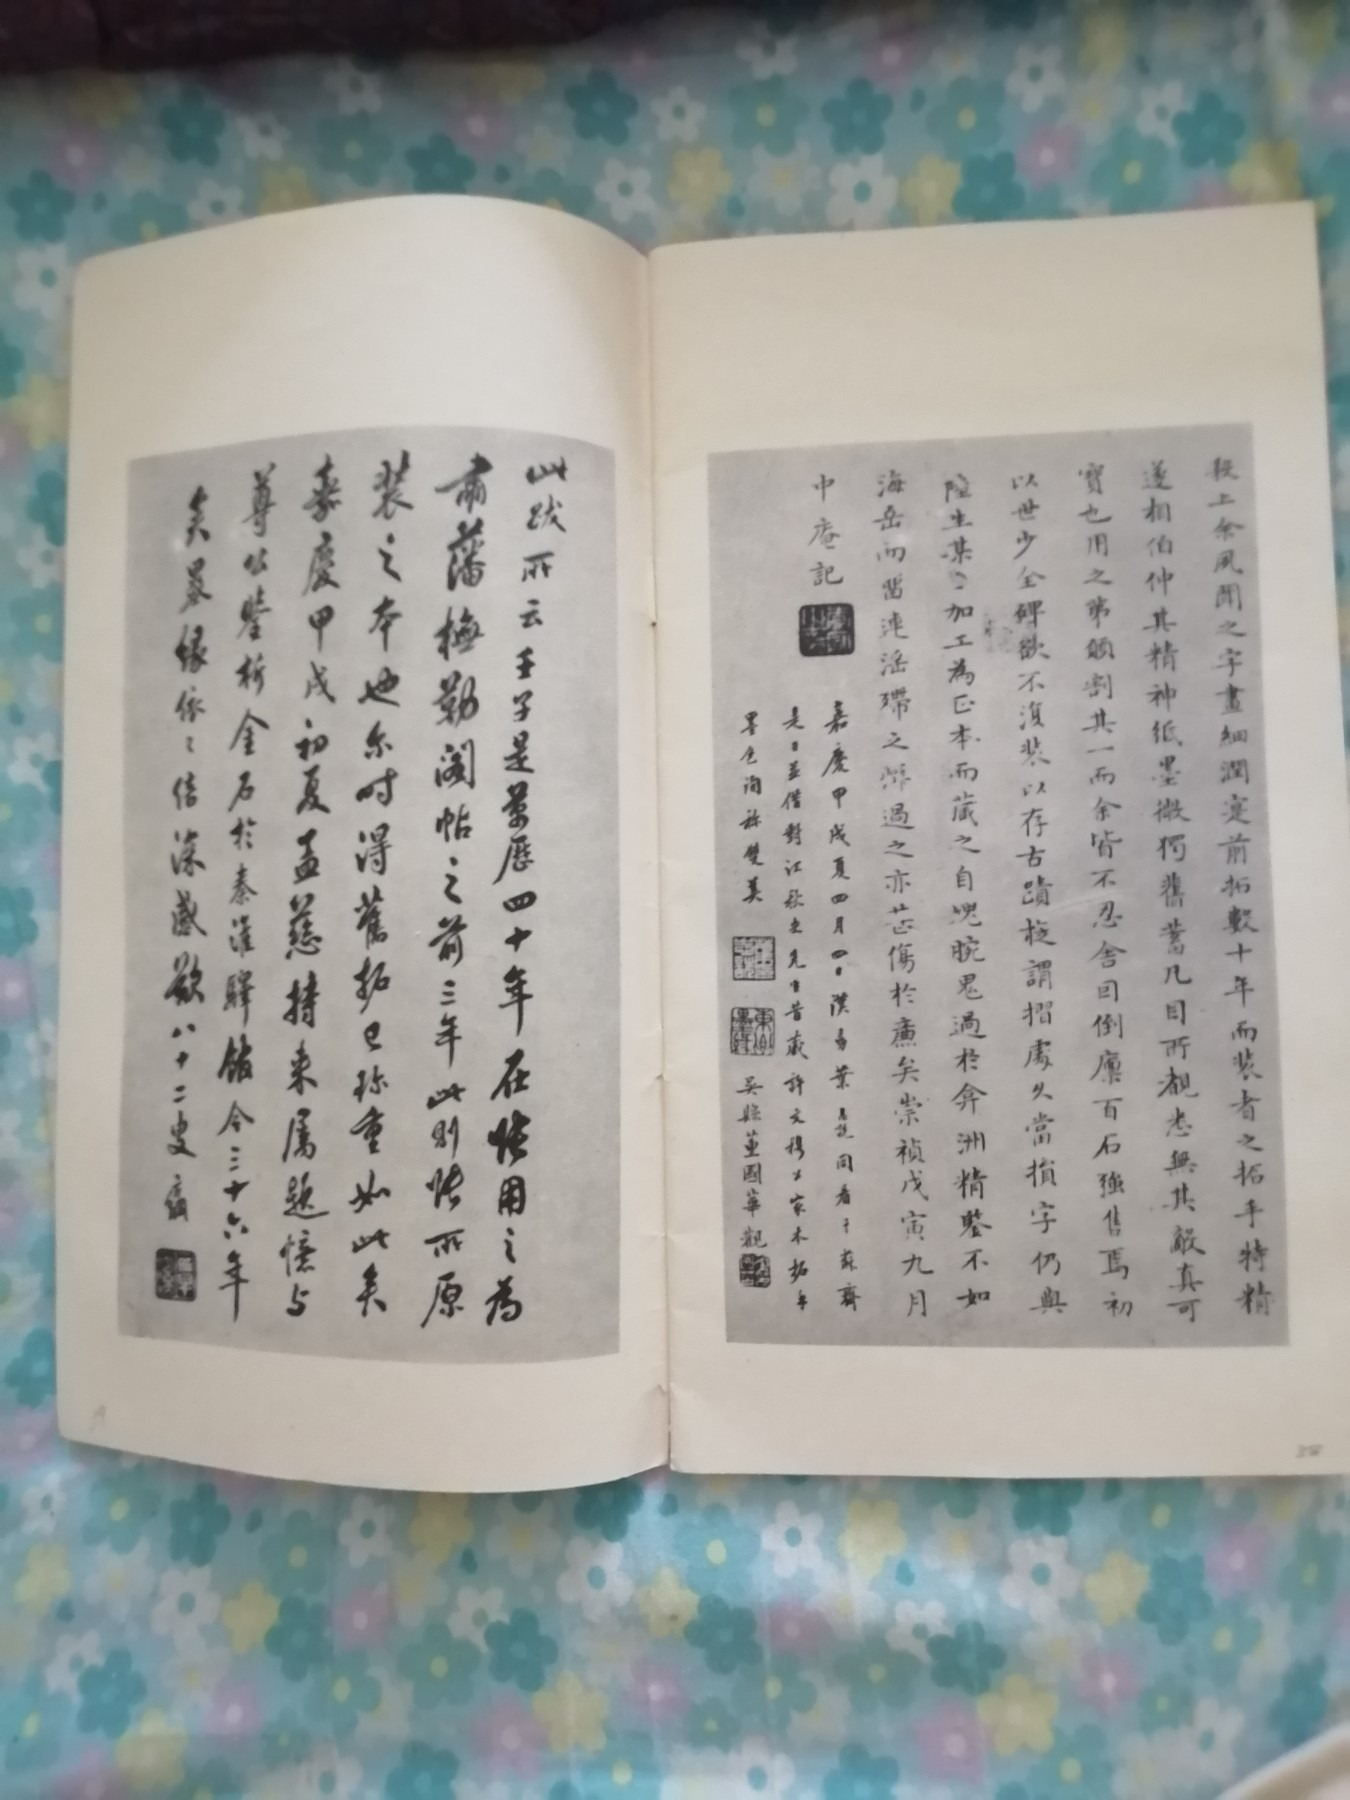 余風聞之字畫細潤寔前拓數十年而裝者之拓手特精
遂相伯仲其精神紙墨微獨舊蓄凡目所覩悉無其敵真可
寶也用之第頗割其一而余皆不忍舍因倒廪百石強售焉初
以世少全碑欲不復裝以存古蹟旋謂摺處久當損字仍與
陸生某加工為正本而藏之自媿腕鬼過於弇洲精鑒不如
海岳而留連滛殢之癖過之亦甚傷於亷矣崇禎戊寅九月
中庵記
嘉慶甲戌夏四月四日漢陽葉同看于蘇齋
是日並借對江秋史先生昔藏許文穆公家本拓手
墨色洵称雙美
吳縣董國華觀
此跋所云壬子是萬厯四十年在惟用之為
肅藩橅勒閣帖之前三年此則惟所原
裝之本也尔時得舊拓已珍重如此矣
嘉慶甲戌初夏孟慈持来属題憶与
尊公鑒析金石於秦淮驛館今三十六年
矣墨緣依〻倍深感歎八十二叟